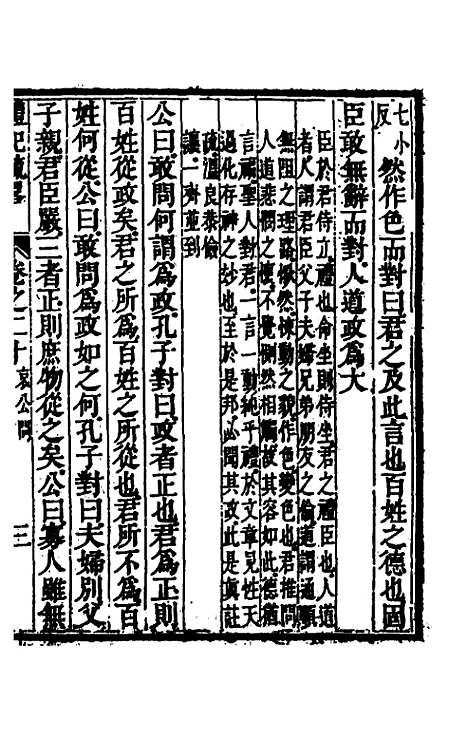 七小反然作色而對曰君之及此言也百姓之德也固
臣敢無辭而對人道政爲大
臣於君侍立禮也命坐則侍坐君之禮臣也人道
者人謂君臣父子夫婦兄弟朋友之倫道謂通順
無阻之理路愀然悚動之貌作色變色也君推問
人道悲憫之懷不覺惻然相觸故其容如此德猶
言福聖人對君一言一動純乎禮於文章見性天
過化存神之妙也至於是邦必聞其政此是眞註
疏溫良恭儉
讓一齊並到
公曰敢問何謂爲政孔子對曰政者正也君爲正則
百姓從政矣君之所爲百姓之所從也君所不爲百
姓何從公曰敢問爲政如之何孔子對曰夫婦別父
子親君臣嚴三者正則庶物從之矣公曰寡人雖無
禮記疏畧 卷之二十 哀公問 三